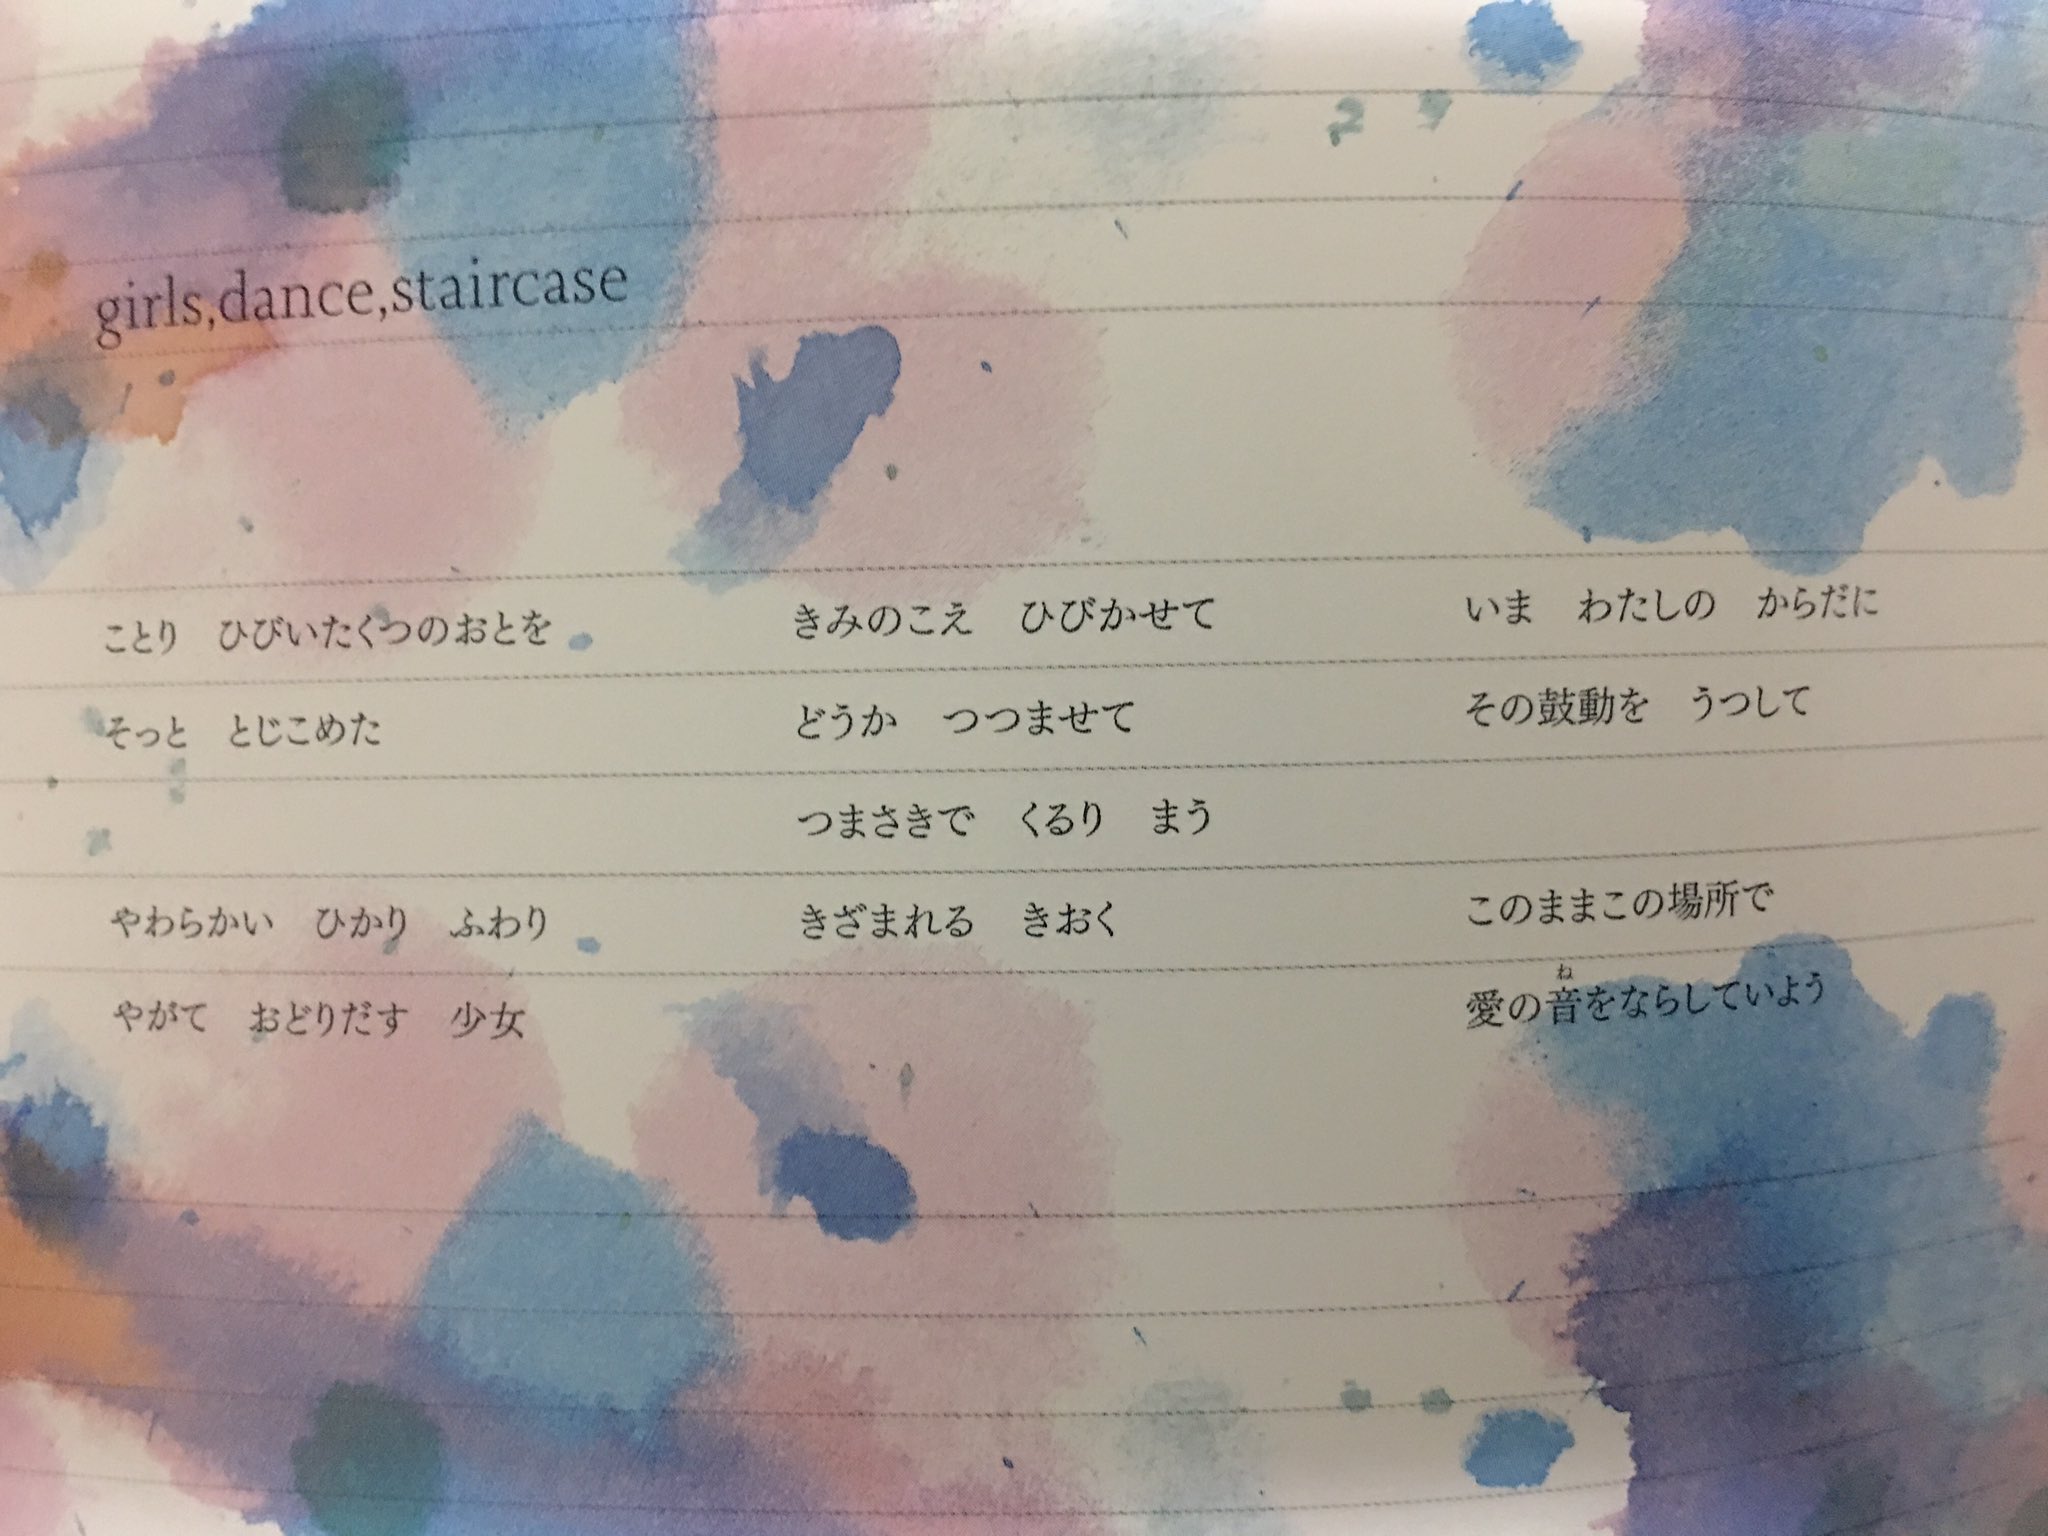 girls,dance,staircase
ことり　ひびいたくつのおとを
そっと　とじこめた
やわらかい　ひかり　ふわり
やがて　おどりだす　少女
きみのこえ　ひびかせて
どうか　つつませて
つまさきで　くるり　まう
きざまれる　きおく
いま　わたしの　からだに
その鼓動を　うつして
このままこの場所で
ね
愛の音をならしていよう